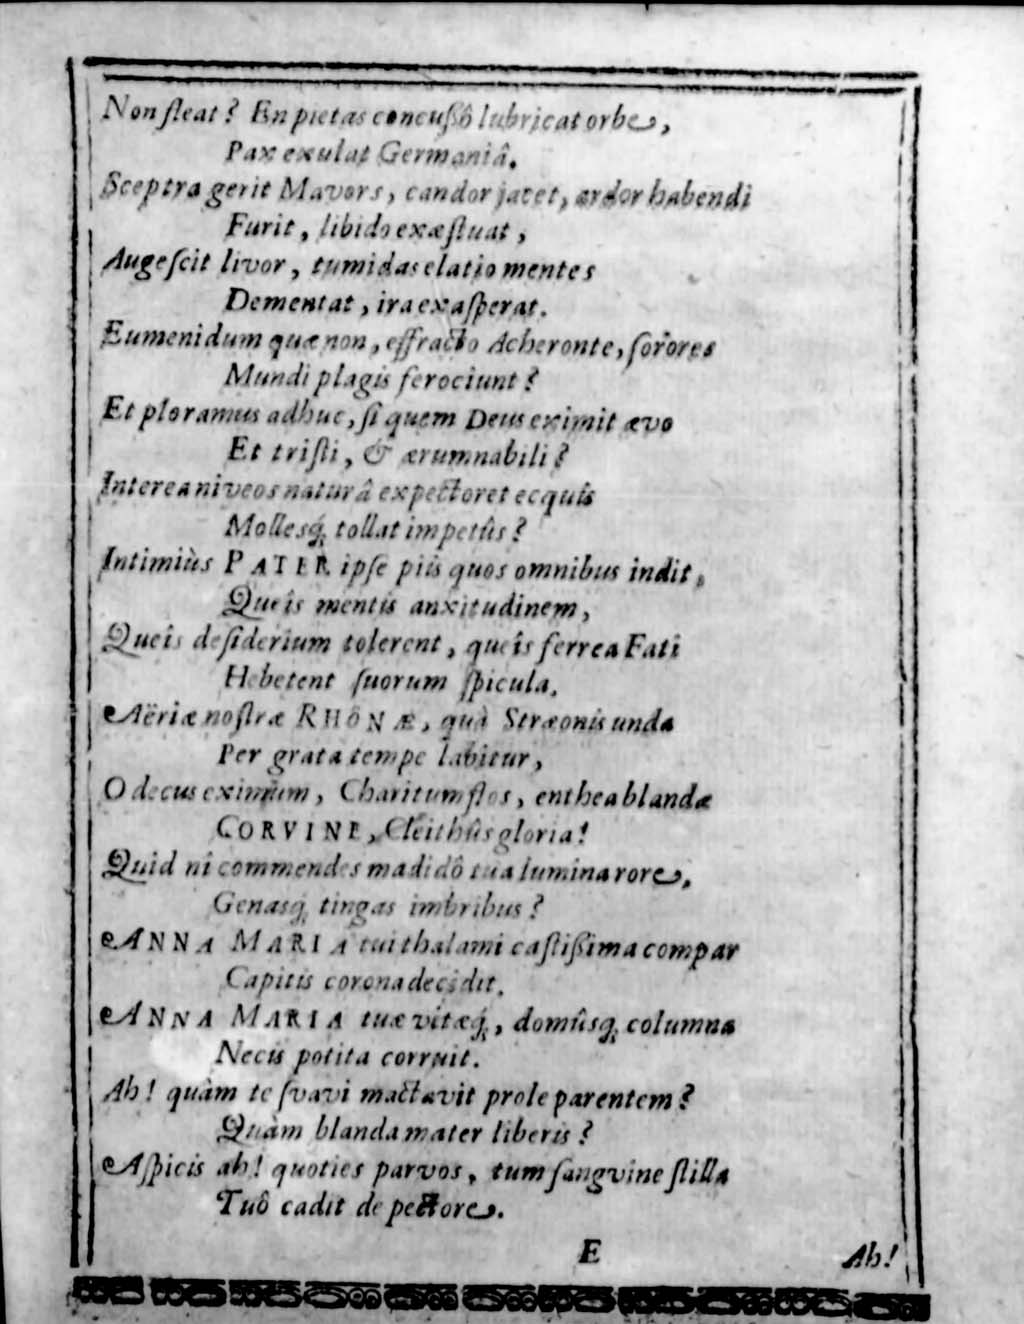 Non fleat? En pietas concußô lubricat orbe,
Pax exulat Germaniâ.
Sceptra gerit Mavors, candor jacet, ardor habendi
Furit, libido exæſtuat,
Augeſcit livor, tumidas elatio mentes
Dementat, ira exaſperat.
Eumenidum quæ non, effracto Acheronte, ſorores
Mundi plagis ferociunt?
Et ploramus adhuc, ſi quem Deus eximit ævo
Et triſti, & ærumnabili?
Interea niveos naturâ expectoret ecquîs
Mollesq́; tollat impetûs?
Intimiùs PATER ipſe piis quos omnibus indit,
Queîs mentis anxitudinem,
Queîs deſiderium tolerent, queîs ferrea Fati
Hebetent ſuorum ſpicula.
Aëriæ noſtræ RHÔNÆ, quà Stræonis unda
Per grata tempe labitur,
O decus eximium, Charitum flos, enthea blandæ
CORVINE, Cleithûs gloria!
Quid nî commendes madidô tua lumina rore,
Genasq́; tingas imbribus?
ANNA MARIA tui thalami caſtißima compar
Capitis corona decidit.
ANNA MARIA tuæ vitæq́;, domûsq́; columna
Necis potita corruit.
Ah! quàm te ſvavi mactavit prole parentem?
Quàm blanda mater liberis?
Aſpicis ah! quoties parvos, tum ſangvine ſtilla
Tuô cadit de pectore.
E Ah!